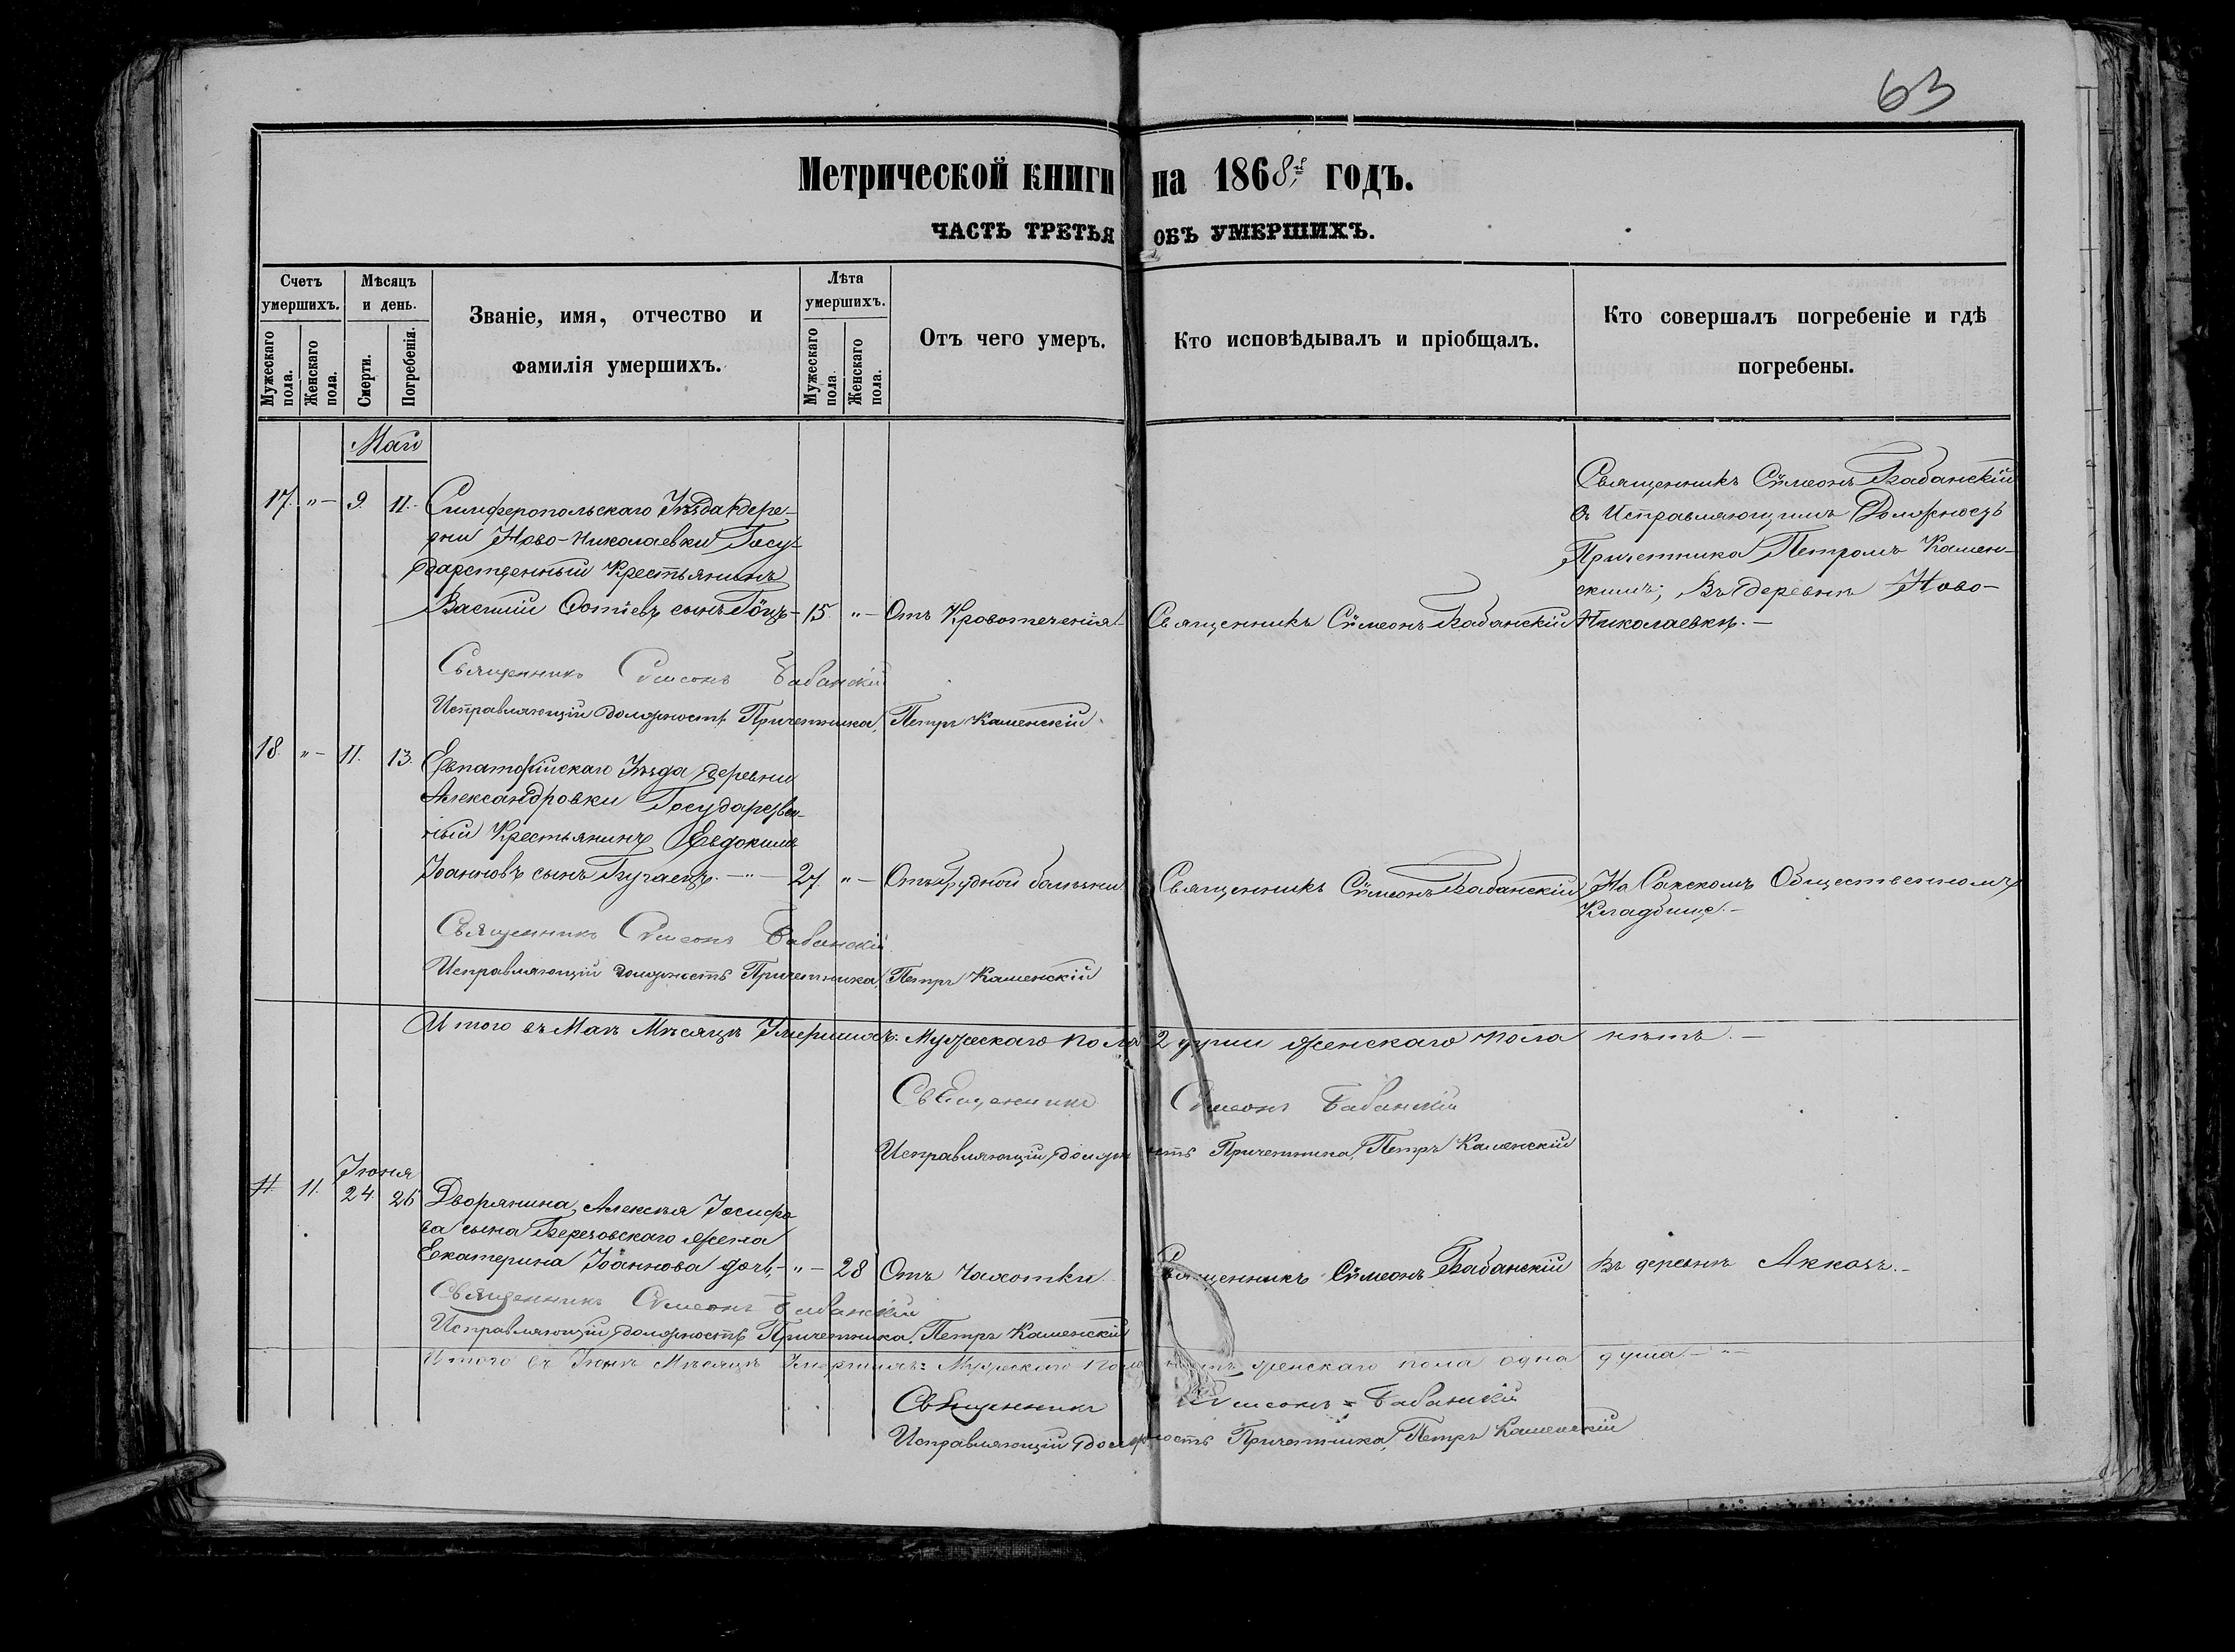 63
Метрической книги на 1868й годъ.
ЧАСТЬ ТРЕТЬЯ ОБЪ УМЕРШИХЪ.
Счетъ умершихъ.
Мужескаго пола.
Женскаго пола.
Мѣсяцъ и день.
Смерти.
Погребенія.
Званіе, имя, отчество и
фамилія умершихъ.
Лѣта умершихъ.
Мужескаго пола.
Женскаго пола.
Отъ чего умеръ.
Кто исповѣдывалъ и пріобщалъ.
Кто совершалъ погребеніе и гдѣ
погребены.
Май
17. "— 9. 11. Симферопольскаго Уѣзда дере-
вни Ново-Николаевки Госу-
дарственный Крестьянинъ
Василій Фотіевъ сынъ — 15. "— Отъ Кровотеченія Священникъ Сѵмеонъ Бабанскій
Священникъ Сѵмеонъ Бабанскій
съ Исправляющимъ Должность
Причетника Петромъ Камен-
скимъ; Въ деревнѣ Ново-
Николаевкѣ. —
Священникъ Сѵмеонъ Бабанскій
Исправляющій должность Причетника, Петръ Каменскій
18. "— 11. 13. Евпаторійскаго Уѣзда деревни
Александровки Государствен-
ный Крестьянинъ Евдокимъ
Іоанновъ сынъ —"— 27. "— Отъ Грудной болѣзни Священникъ Сѵмеонъ Бабанскій На Сакскомъ Общественномъ
Кладбище. —
Священникъ Сѵмеонъ Бабанскій
Исправляющій должность Причетника, Петръ Каменскій
Итого въ Маѣ Мѣсяцѣ Умершихъ: Мужескаго пола 2 души женскаго пола нѣтъ. —
Священникъ Сѵмеонъ Бабанскій
Исправляющій должность Причетника, Петръ Каменскій
Іюня
11. 24. 26 Дворянина, Алексѣя Іосифо
ва сына Березовскаго жена
Екатерина Іоаннова дочь, — "— 28 Отъ Чахотки Священникъ Сѵмеонъ Бабанскій Въ деревнѣ Аккозъ. —
Священникъ Сѵмеонъ Бабанскій
Исправляющій должность Причетника, Петръ Каменскій
Итого въ Іюнѣ Мѣсяцѣ Умершихъ: Мужескаго пола нѣтъ женскаго пола одна душа. —"—
Священникъ Сѵмеонъ = Бабанскій
Исправляющій должность Причетника, Петръ Каменскій